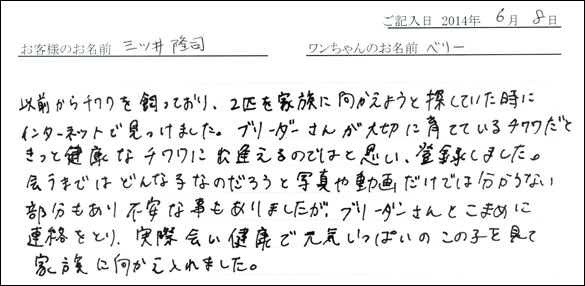 ご記入日 2014年 6月 8日
お客様のお名前 三ツ井 隆司 ワンちゃんのお名前 ベリー
以前からチワワを飼っており、2匹を家族に向かえようと探していた時に
インターネットで見つけました。ブリーダーさんが大切に育てているチワワだと
きっと健康なチワワに出逢えるのではと思い、登録しました。
会うまではどんな子なのだろうと写真や動画だけでは分からない
部分もあり不安な事もありましたが、ブリーダーさんとこまめに
連絡をとり、実際会い健康で元気いっぱいのこの子を見て
家族に向かえ入れました。